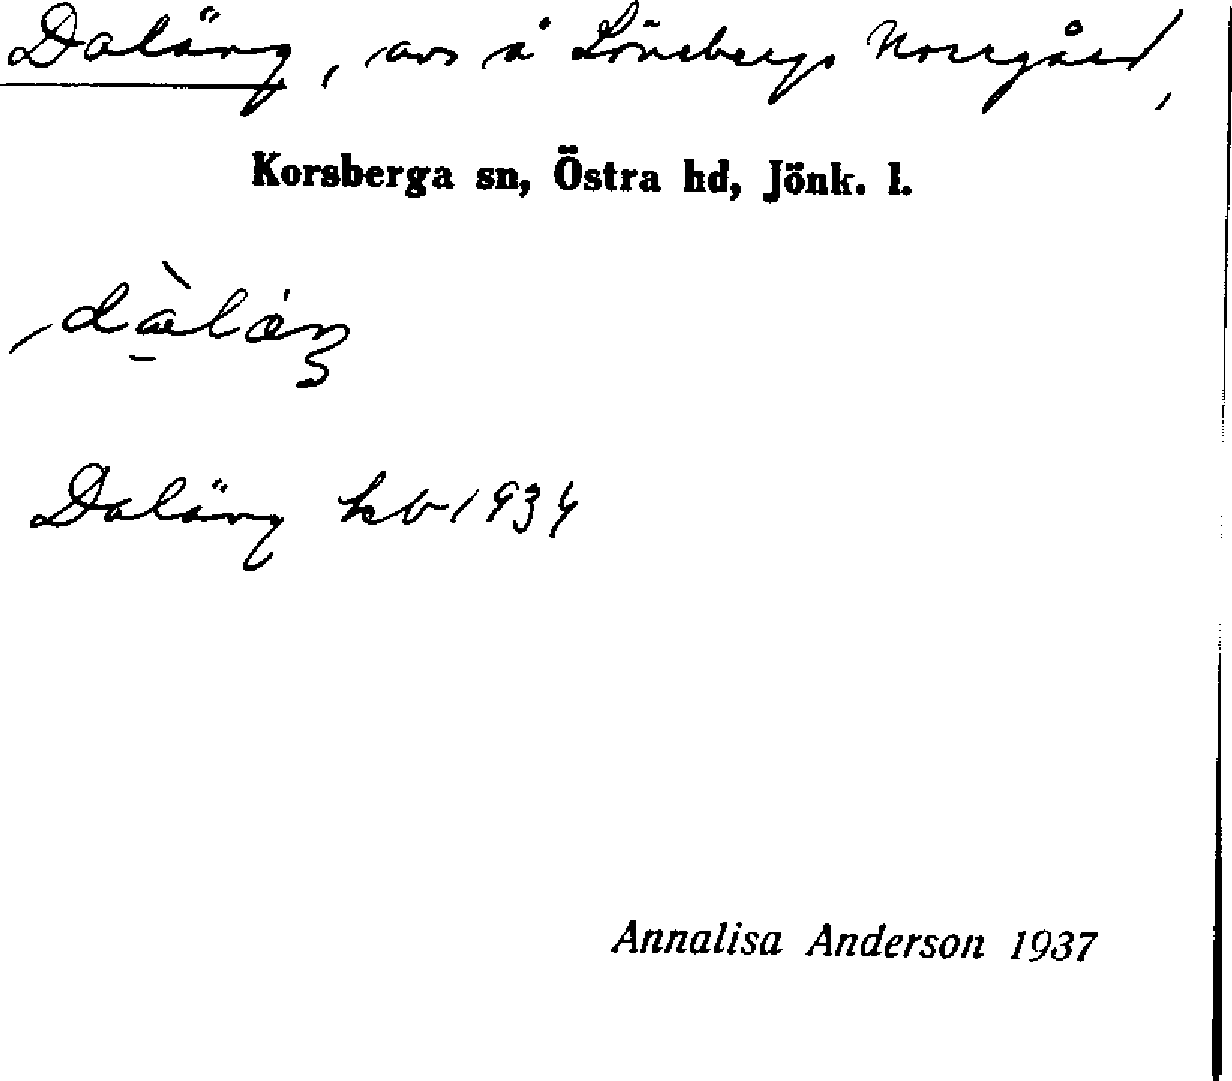 Daläng, avs å Lönsbergs Norrgård,
Korsberga sn, Östra hd, Jönk. l.
Daläng kb 1934
Annalisa Anderson 1937